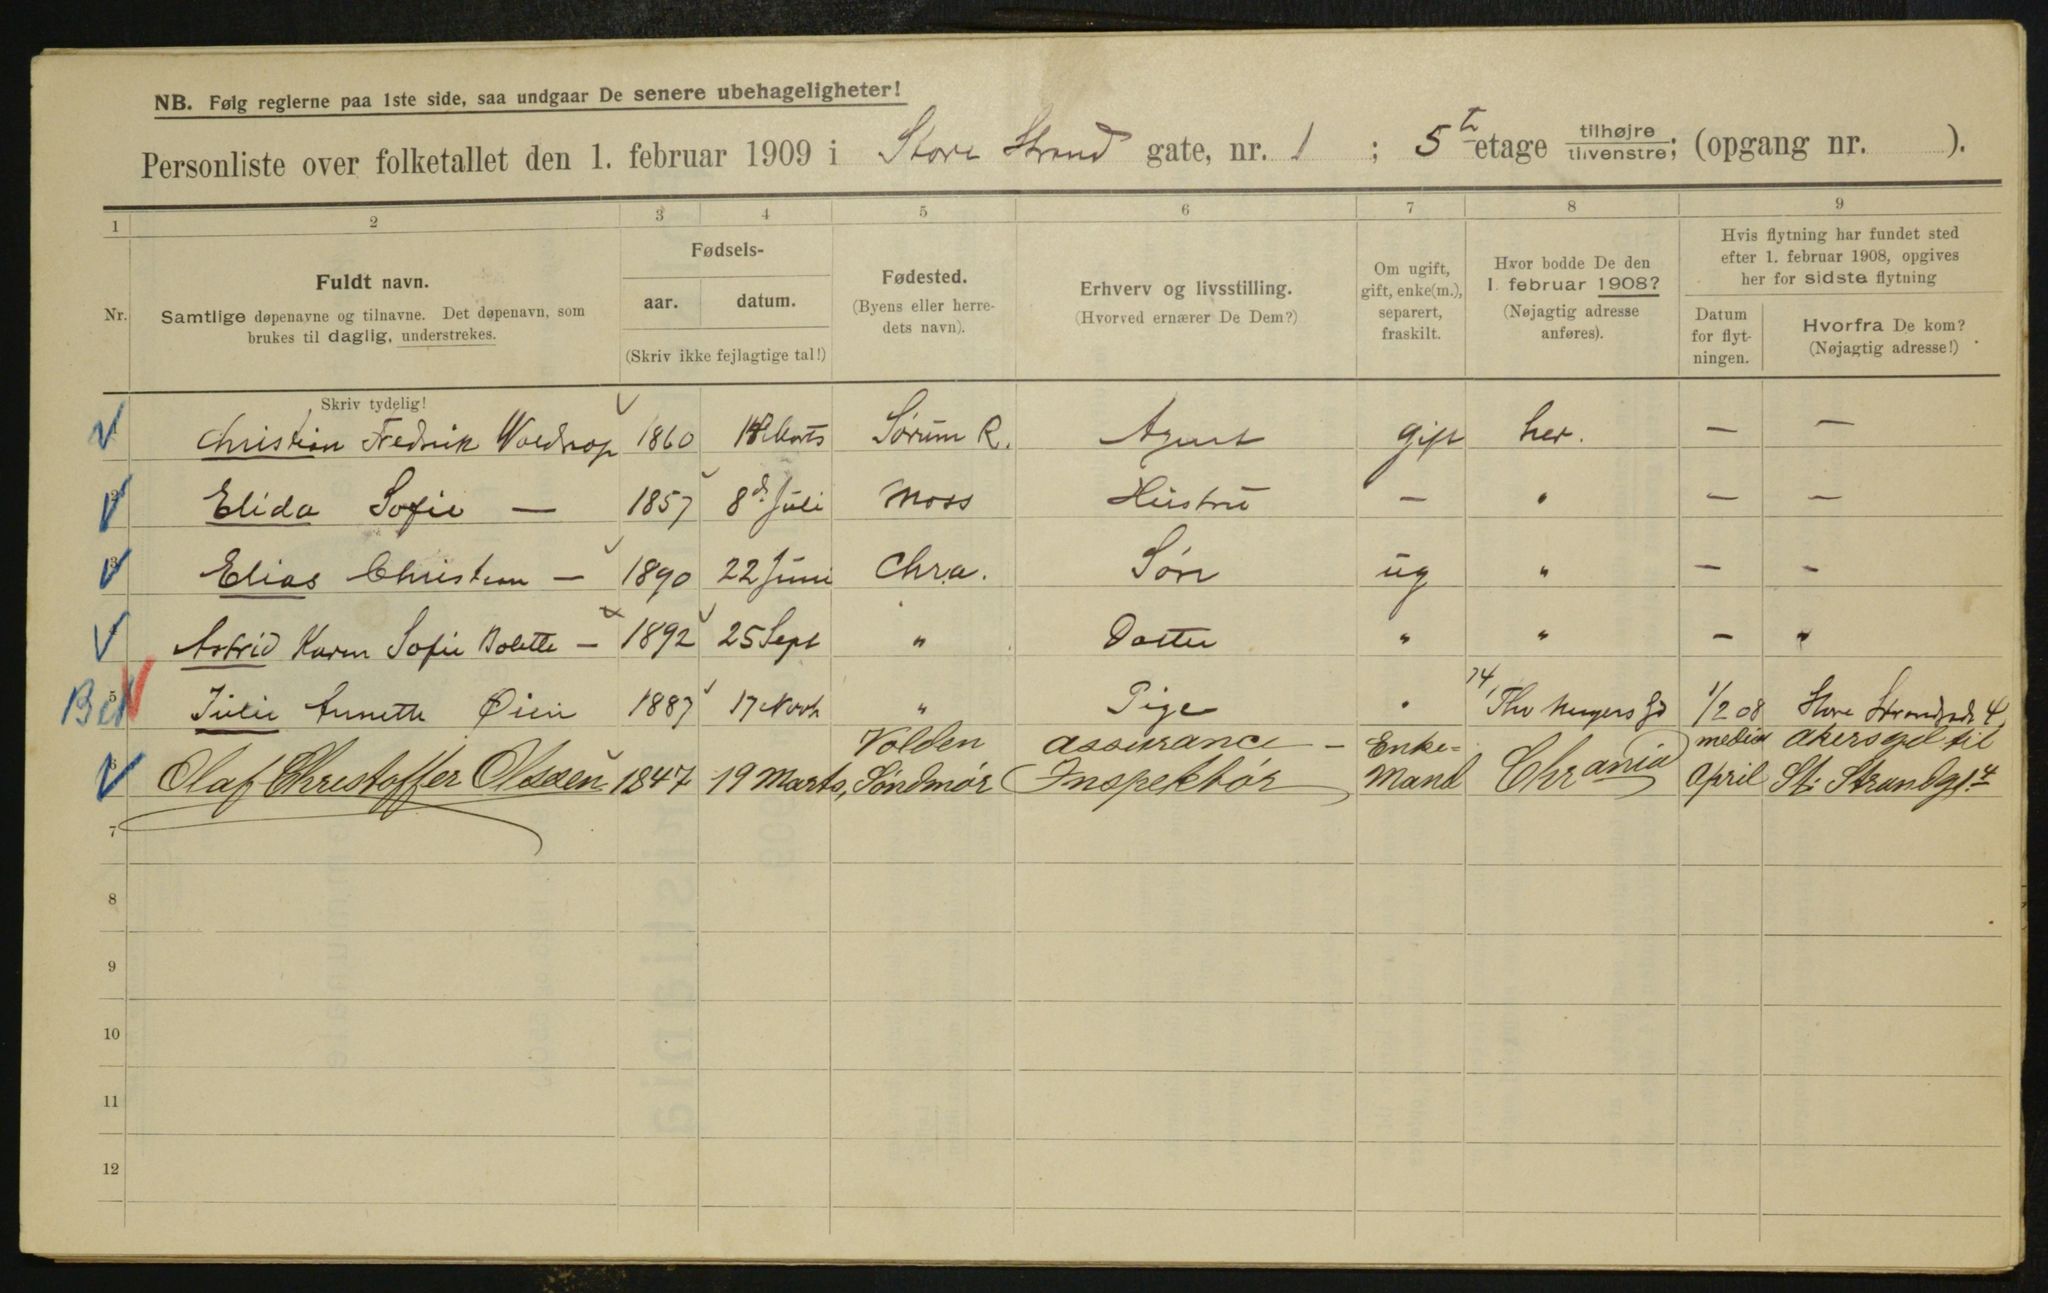 NB. Følg reglerne paa 1ste side, saa undgaar De senere ubehageligheter!
Personliste over folketallet den 1. februar 1909 i Store Strand gate, nr. 1 ; 5te etage tilhøjre tilvenstre; (opgang nr. ).
1 2 3 4 5 6 7 8 9
Nr.
Fuldt navn.
Samtlige døpenavne og tilnavne. Det døpenavn, som
brukes til daglig, understrekes.
Skriv tydelig!
Fødsels-
aar. datum.
(Skriv ikke fejlagtige tal!)
Fødested.
(Byens eller herre-
dets navn).
Erhverv og livsstilling.
(Hvorved ernærer De Dem?)
Om ugift,
gift, enke(m.),
separert,
fraskilt.
Hvor bodde De den
1. februar 1908?
(Nøjagtig adresse
anføres).
Hvis flytning har fundet sted
efter 1. februar 1908, opgives
her for sidste flytning
Datum
for flyt-
ningen.
Hvorfra De kom?
(Nøjagtig adresse!)
Christian Fredrik Woldrop 1860 Marts Sørum R. Agent gift her. — —
2 Elida Sofie — 1857 8d. Juli Moss Hustru — " — —
3 Elias Christian — 1890 22 Juni Chra. Søn ug " — —
Astrid Karen Sofie Bolette — 1892 25 Sept " Datter " " — "
5 Julie Annette Øien 1887 17 Novb " Pige " 74, Thv Meyers gd 1/2 08 Store Strandgd 4,
Volden assurance — Enke= medio akersgd til
6 Olaf Christoffer Olssen 1847 19 Marts, Søndmør Inspektør Mand Chrania April St: Strandgt. 4
7
8
9
10
11
12